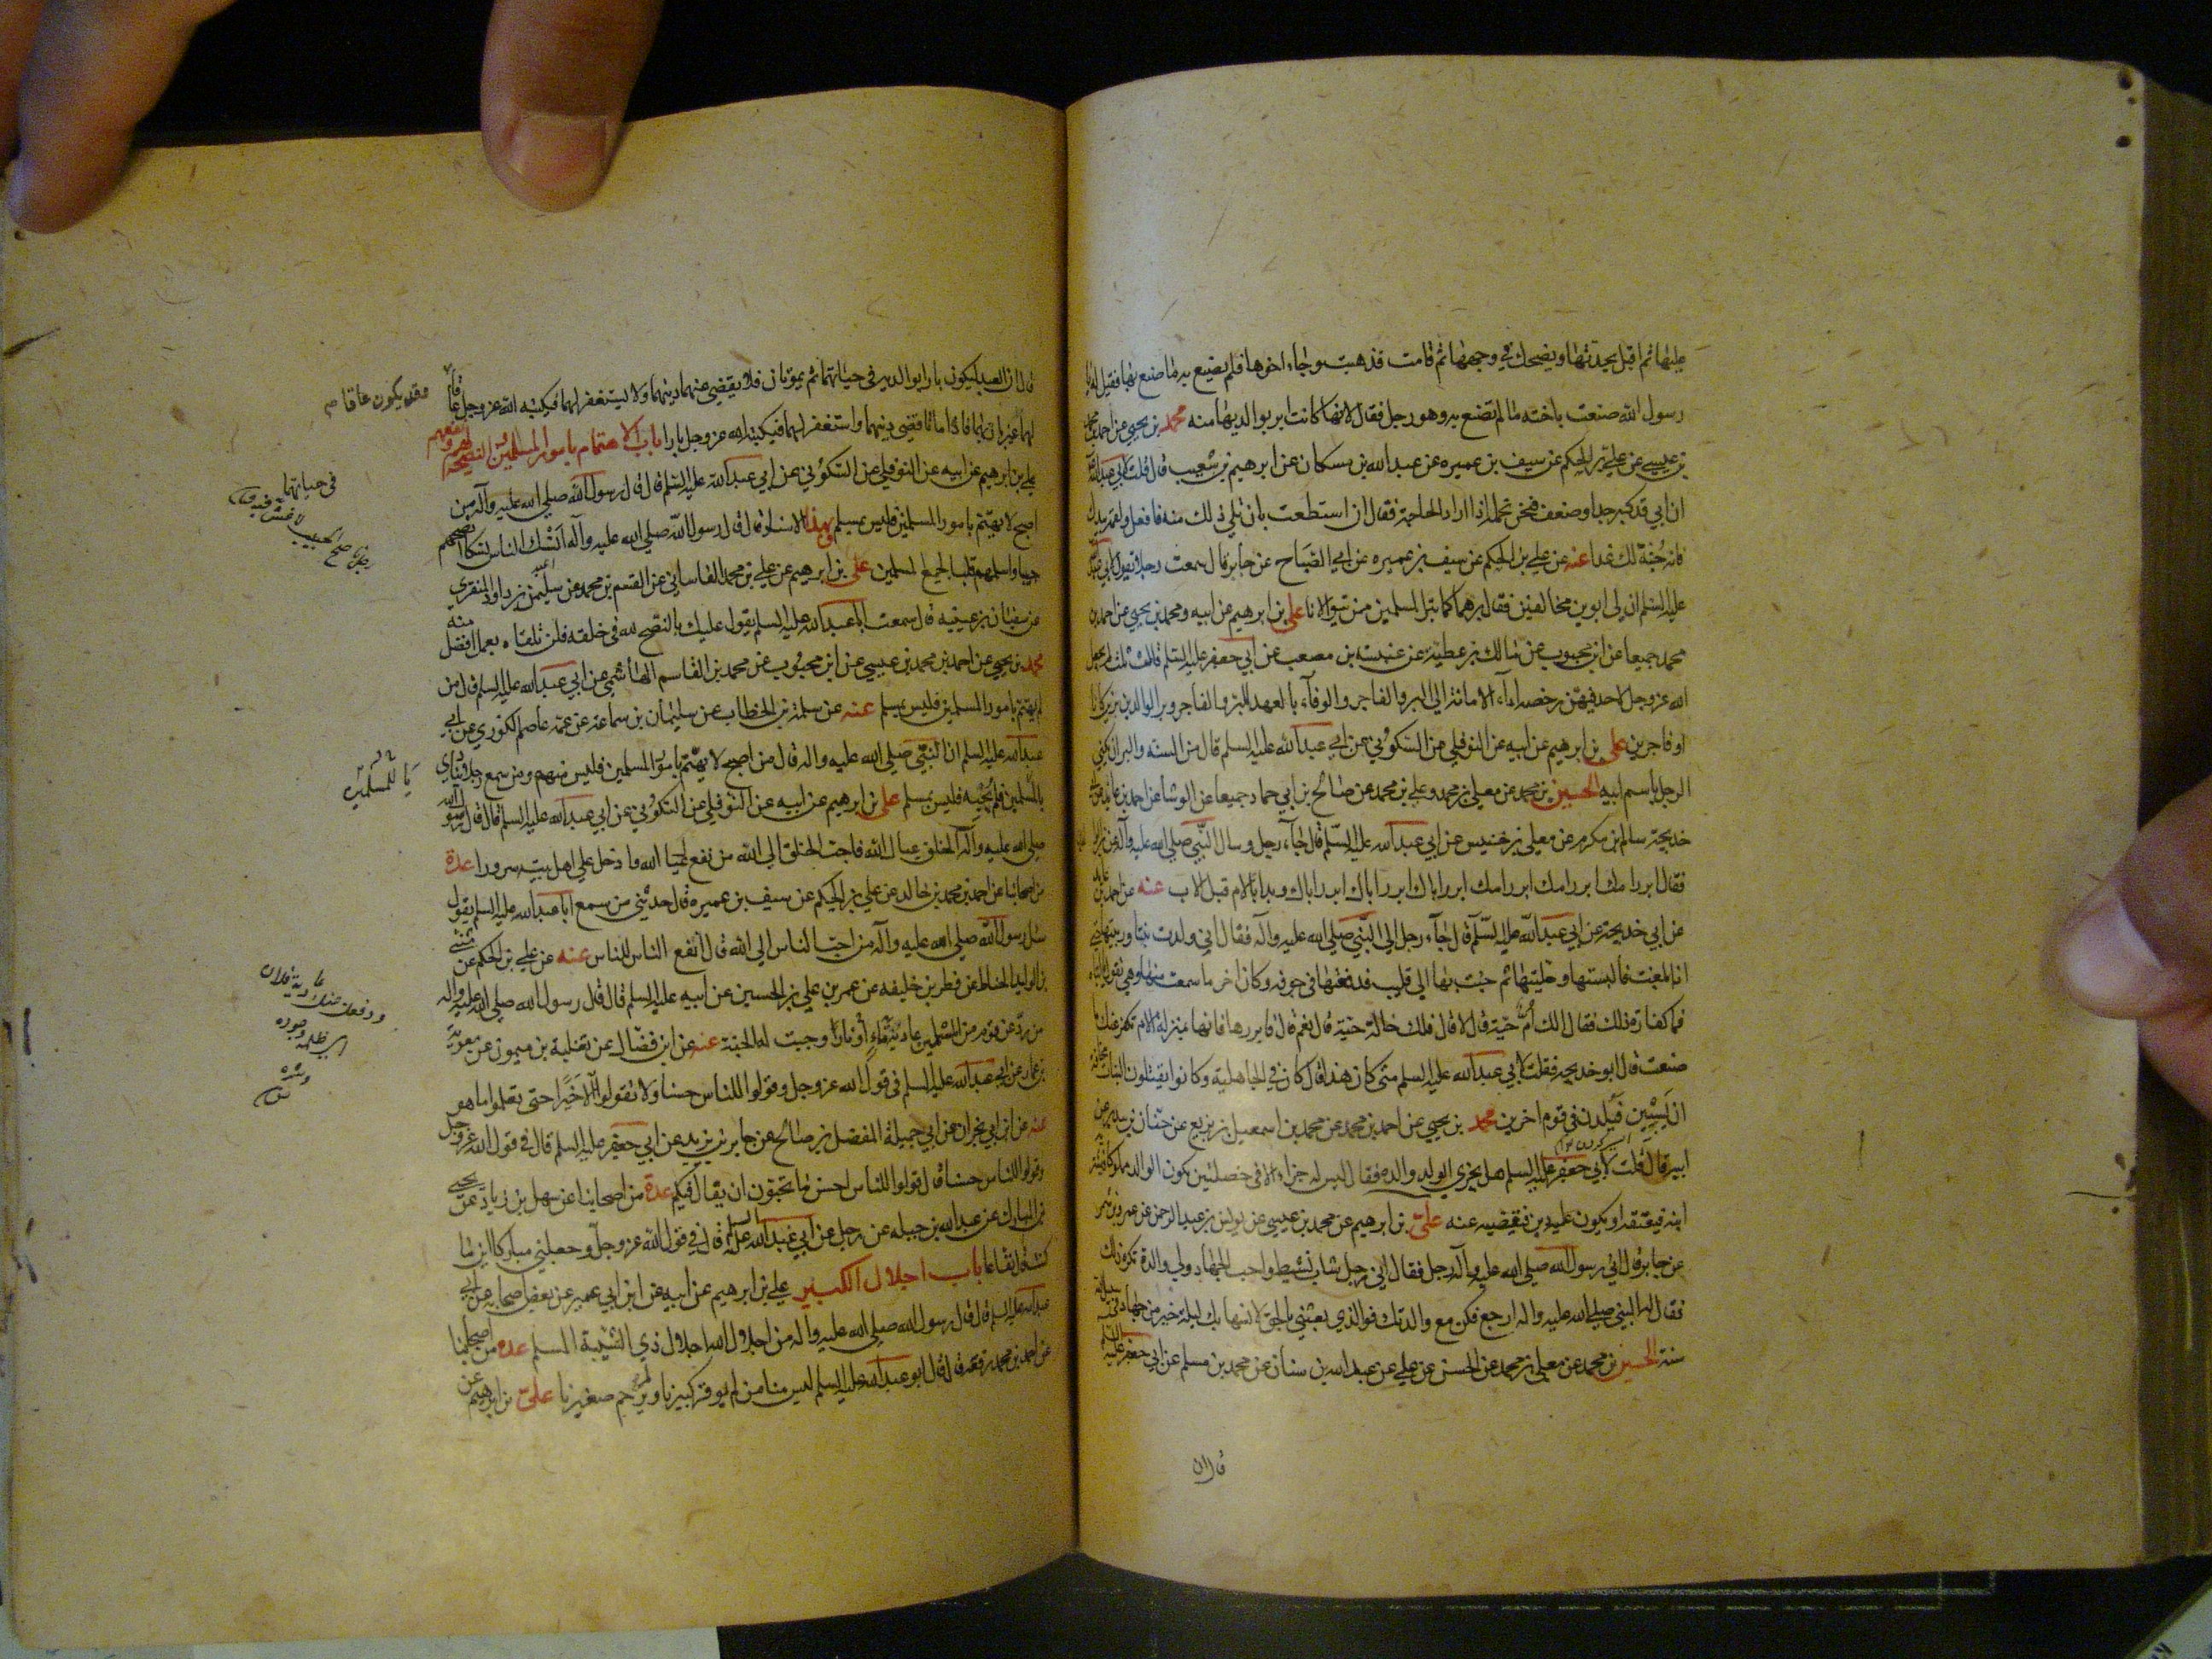 عليها ثم اقبل يحدثها ويضحك في وجهها ثم قامت فذهبت وجاء اخوها فلم يصنع به ما صنع بها فقيل له يا
رسول الله صنعت باخته ما لم تصنع به وهو رجل فقال لانها كانت ابر بوالديها منه محمد بن يحيى عن احمد بن محمد
بن عيسى عن علي بن الحكم عن سيف بن عميره عن عبد الله بن مسكان عن ابرهيم بن شعيب قال قلت لابي عبد الله
ان ابي قد كبر جدا وضعف فنحن نحمله اذا اراد الحاجة فقال ان استطعت بان تلي ذلك منه فافعل ولقمه بيدك
فانه جنة لك غدا عنه عن علي بن الحكم عن سيف بن عميره عن ابي الصباح عن جابر قال سمعت رجلا يقول لابي عبد الله
عليه السلم ان لي ابوين مخالفين فقال برهما كما تبر المسلمين ممن يتوالانا علي بن ابرهيم عن ابيه ومحمد بن يحيى عن احمد بن
محمد جميعا عن ابن محبوب عن مالك بن عطية عن عنبسة بن مصعب عن ابي جعفر عليه السلم قال ثلث لم يجعل
الله عز وجل لاحد فيهن رخصه اداء الامانة الى البر والفاجر والوفاء بالعهد للبر والفاجر وبر الوالدين برين كانا
او فاجرين علي بن ابرهيم عن ابيه عن النوفلي عن السكوني عن ابي عبد الله عليه السلم قال من السنه والبر ان يكنى
الرجل باسم ابيه الحسين بن محمد عن معلى بن محمد وعلي بن محمد عن صالح بن ابي حماد جميعا عن الوشا عن احمد بن عائذ عن ابي
خديجة سالم بن مكرم عن معلى بن خنيس عن ابي عبد الله عليه السلم قال جاء رجل وسال النبي صلى الله عليه وآله عن بر الوالدين
فقال ابرر امك ابرر امك ابرر امك ابرر اباك ابرر اباك ابرر اباك وبدا بالام قبل الاب عنه عن احمد بن عائذ
عن ابي خديجة عن ابي عبد الله عليه السلم قال جاء رجل الى النبي صلى الله عليه وآله فقال اني ولدت بنتا وربيتها حتى
اذا بلغت فالبستها وحليتها ثم جئت بها الى قليب فدفعتها في جوفه وكان اخر ما سمعت منها وهي تقول يا ابتاه
فما كفارة ذلك فقال الك ام حية قال لا قال فلك خالة حية قال نعم قال فابررها فانها بمنزلة الام تكفر عنك ما
صنعت قال ابو خديجه فقلت لابي عبد الله عليه السلم متى كان هذا قال كان في الجاهلية وكانوا يقتلون البنات مخافة
ان يسبين فيلدن في قوم اخرين محمد بن يحيى عن احمد بن محمد عن محمد بن اسمعيل بن بزيع عن حنان بن سدير عن
ابيه قال قلت لابي جعفر عليه السلم هل يجزي الولد والده فقال ليس له جزاء الا في خصلتين يكون الوالد مملوكا فيشتريه
ابنه فيعتقه او يكون عليه دين فيقضيه عنه علي بن ابرهيم عن محمد بن عيسى عن يونس بن عبد الرحمن عن عمرو بن شمر
عن جابر قال اتى رسول الله صلى الله عليه وآله رجل فقال اني رجل شاب نشيط واحب الجهاد ولي والدة تكره ذلك
فقال له النبي صلى الله عليه واله ارجع فكن مع والدتك فوالذي بعثني بالحق لانسها بك ليلة خير من جهاد في سبيل الله
سنة الحسين بن محمد عن معلى بن محمد عن الحسن عن علي عن عبد الله بن سنان عن محمد بن مسلم عن ابي جعفر عليه السلم
قال ان
قال ان العبد ليكون بارا بوالديه في حياتهما ثم يموتان فلا يقضي عنهما دينهما ولا يستغفر لهما فيكتبه الله عز وجل عاقا
وقد يكون عاقا
لهما غير بار بهما فاذا ماتا قضى دينهما واستغفر لهما فيكتبه الله عز وجل بارا باب الاهتمام بامور المسلمين والنصيحة لهم ونفعهم
في حياتهما
علي بن ابرهيم عن ابيه عن النوفلي عن السكوني عن ابي عبد الله عليه السلم قال قال رسول الله صلى الله عليه وآله من
اصبح لا يهتم بامور المسلمين فليس بمسلم وبهذا الاسناد قال قال رسول الله صلى الله عليه وآله انسك الناس نسكا انصحهم
جيبا واسلمهم قلبا لجميع المسلمين علي بن ابرهيم عن علي بن محمد القاساني عن القسم بن محمد عن سليمن بن داود المنقري
عن سفيان بن عيينه قال سمعت ابا عبد الله عليه السلم يقول عليك بالنصح لله في خلقه فلن تلقاه بعمل افضل منه
محمد بن يحيى عن احمد بن محمد بن عيسى عن ابن محبوب عن محمد بن القاسم الهاشمي عن ابي عبد الله عليه السلم قال من
لم يهتم بامور المسلمين فليس بمسلم عنه عن سلمة بن الخطاب عن سليمان بن سماعة عن عمه عاصم الكوزي عن ابي
عبد الله عليه السلم ان النبي صلى الله عليه واله قال من اصبح لا يهتم بامور المسلمين فليس منهم ومن سمع رجلا ينادي
يا للمسلمين
بالمسلمين فلم يجبه فليس بمسلم علي بن ابرهيم عن ابيه عن النوفلي عن السكوني عن ابي عبد الله عليه السلم قال قال رسول الله
صلى الله عليه وآله الخلق عيال الله فاحب الخلق الى الله من نفع عيال الله وادخل على اهل بيته سرورا عدة
من اصحابنا عن احمد بن محمد بن خالد عن علي بن الحكم عن سيف بن عميره قال حدثني من سمع ابا عبد الله عليه السلم يقول
سئل رسول الله صلى الله عليه وآله من احب الناس الى الله قال انفع الناس للناس عنه عن علي بن الحكم عن مثنى
بن الوليد الحناط عن فطر بن خليفه عن عمر بن علي بن الحسين عن ابيه عليه السلم قال قال رسول الله صلى الله عليه واله
من رد عن قوم من المسلمين عادية ماء او نارا وجبت له الجنة عنه عن ابن فضال عن ثعلبة بن ميمون عن معوية
بن عمار عن ابي عبد الله عليه السلم في قول الله عز وجل وقولوا للناس حسنا ولا تقولوا الا خيرا حتى تعلموا ما هو
عنه عن ابن ابي نجران عن ابي جميلة المفضل بن صالح عن جابر بن يزيد عن ابي جعفر عليه السلم قال في قول الله عز وجل
وقولوا للناس حسنا قال قولوا للناس احسن ما تحبون ان يقال فيكم عدة من اصحابنا عن سهل بن زياد عن يحيى
بن المبارك عن عبد الله بن جبله عن رجل عن ابي عبد الله عليه السلم قال في قول الله عز وجل وجعلني مباركا اين ما
كنت قال نفاعا باب اجلال الكبير علي بن ابرهيم عن ابيه عن ابن ابي عمير عن بعض اصحابه عن ابي
عبد الله عليه السلم قال قال رسول الله صلى الله عليه واله من اجلال الله اجلال ذي الشيبة المسلم عده من اصحابنا
عن احمد بن محمد رفعه قال قال ابو عبد الله عليه السلم ليس منا من لم يوقر كبيرنا ويرحم صغيرنا علي بن ابرهيم عن